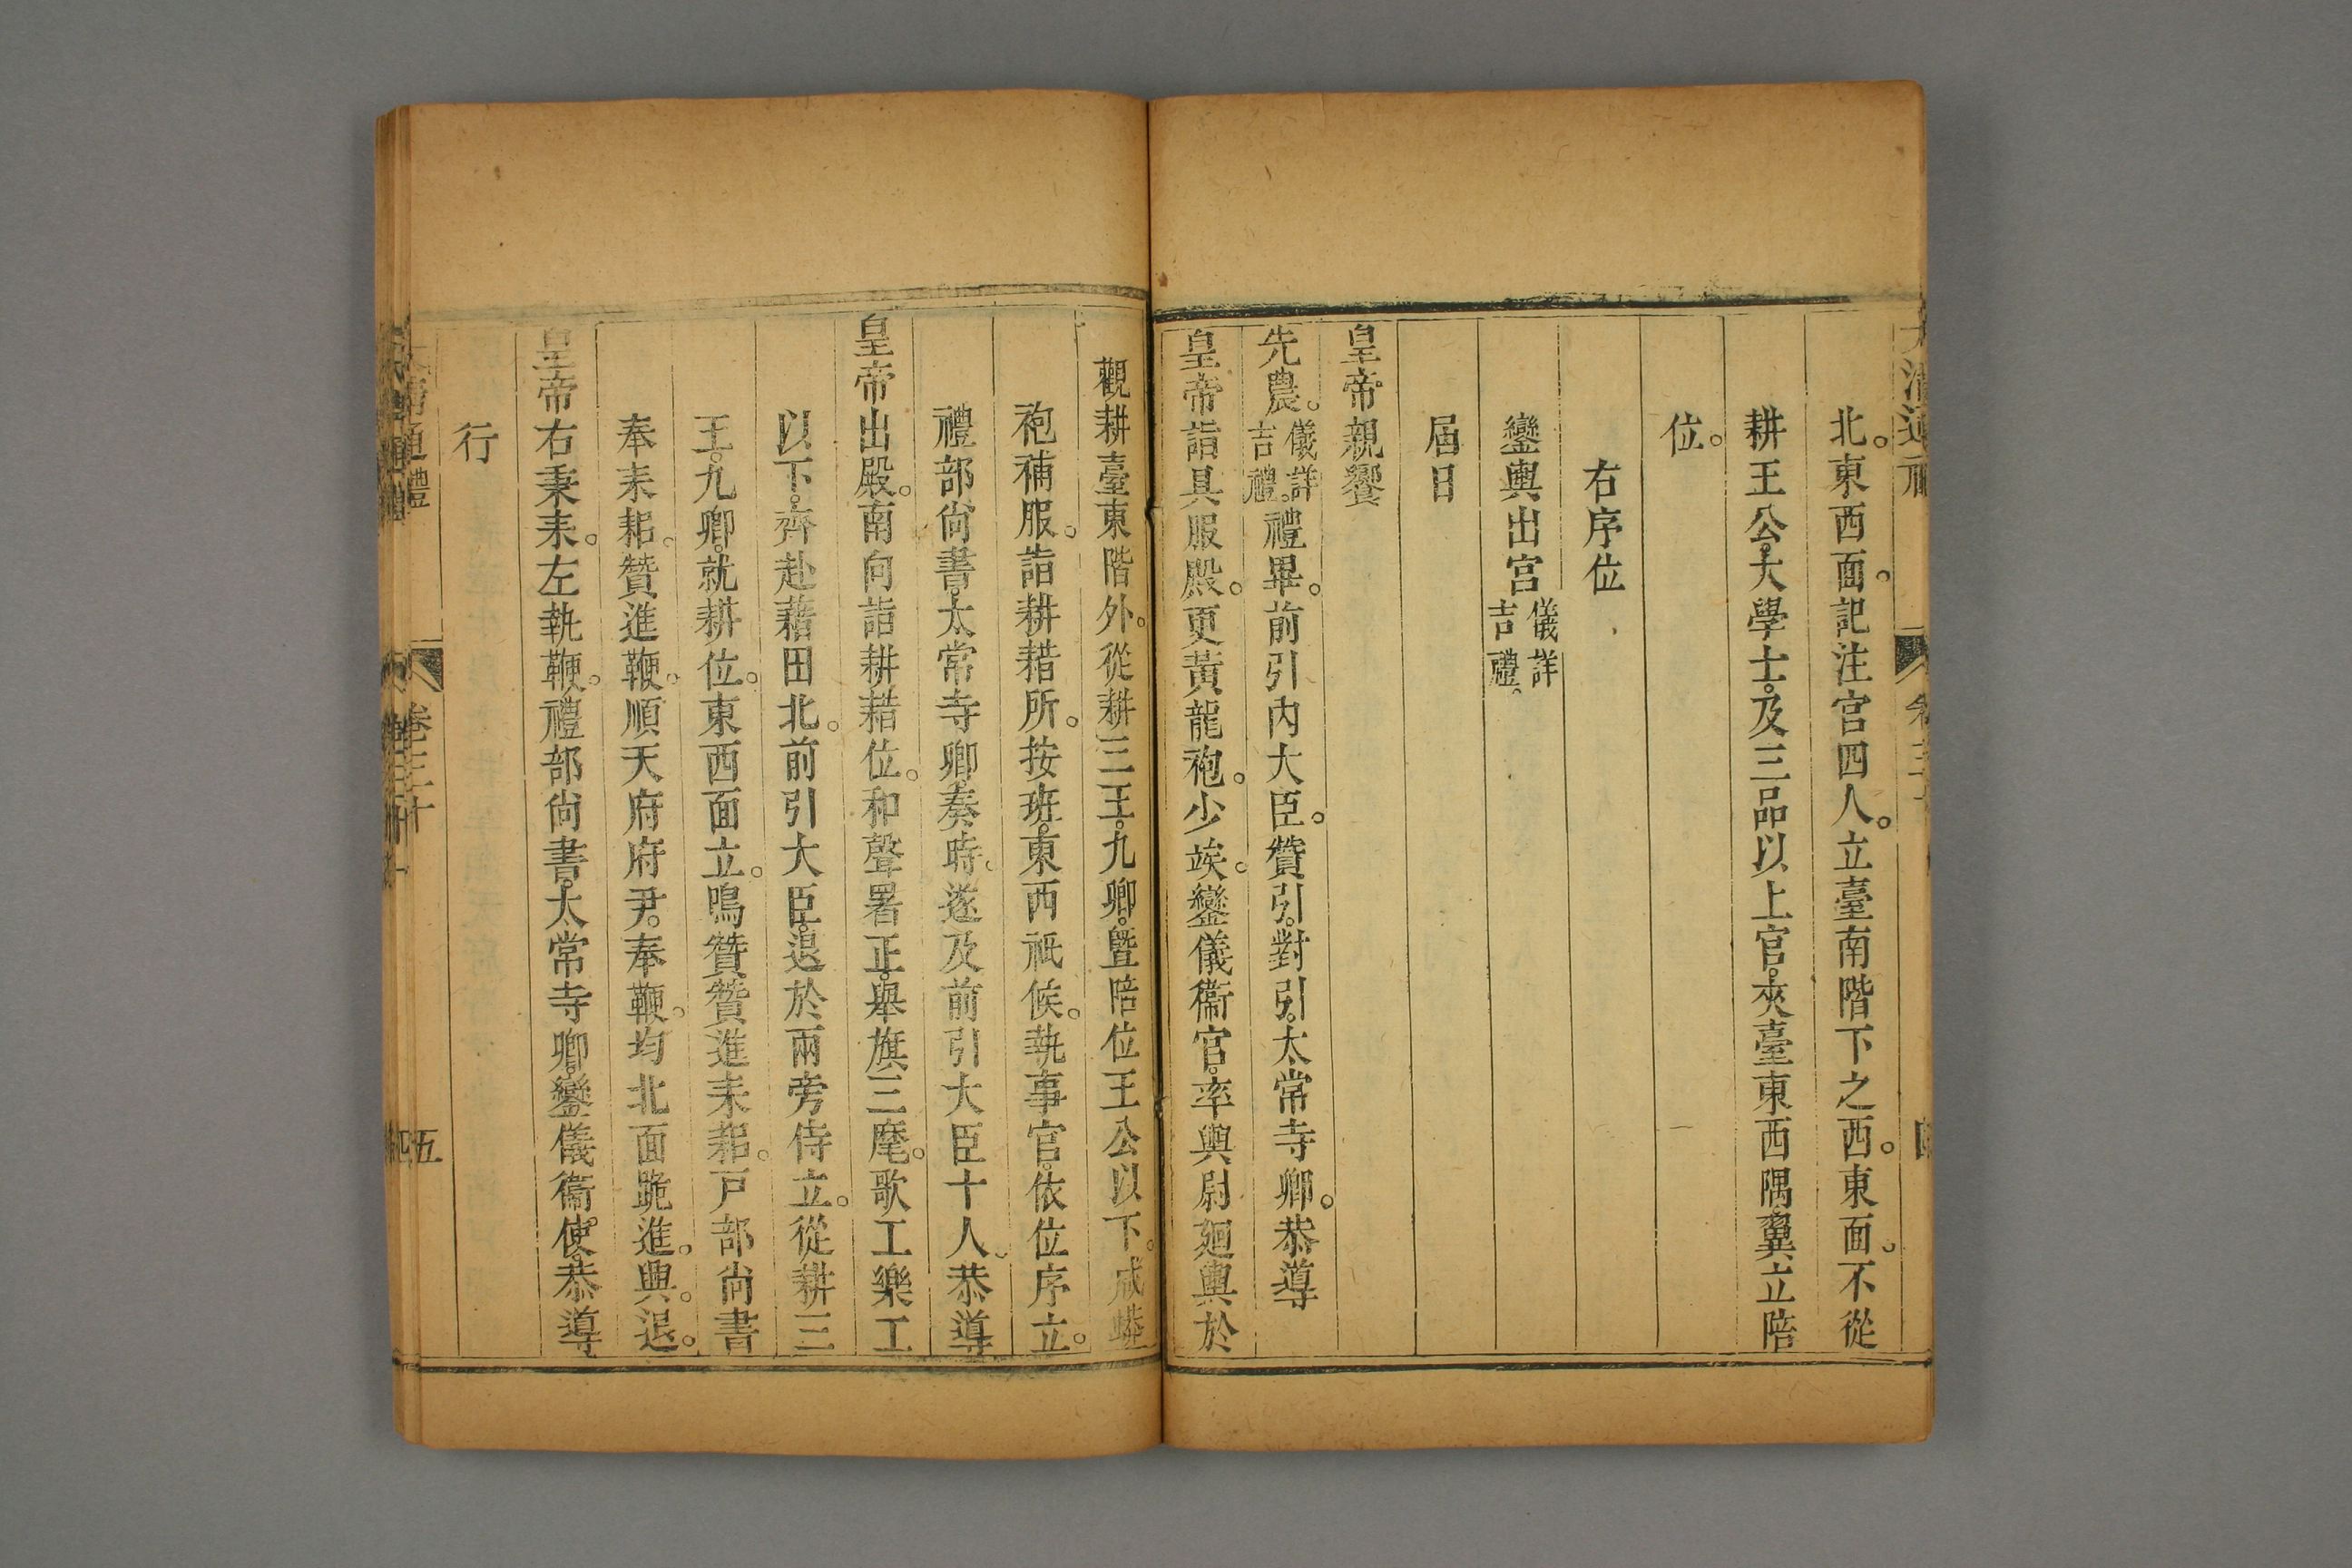 北。東西面。記注官四人。立臺南階下之西。東面。不從
耕王公。大學士。及三品以上官。夾臺東西隅翼立陪
位。
右序位
鑾輿出宮儀詳吉禮。
屆日
皇帝親饗
先農。儀詳吉禮。禮畢。前引內大臣。贊引。對引。太常寺卿。恭導
皇帝詣具服殿。更黃龍袍。少竢。鑾儀衞官。率輿尉廻輿於
觀耕臺東階外。從耕三王。九卿。曁陪位王公以下。咸蟒
袍補服。詣耕耤所。按班。東西祗候。執事官。依位序立。
禮部尙書。太常寺卿。奏時。遂及前引大臣十人。恭導
皇帝出殿。南向詣耕耤位。和聲署正。舉旗三麾。歌工樂工
以下。齊赴藉田北。前引大臣。退於兩旁侍立。從耕三
王。九卿。就耕位。東西面立。鳴贊贊進耒耜。戸部尙書
奉耒耜。贊進鞭。順天府府尹。奉鞭。均北面跪進。興。退。
皇帝右秉耒。左執鞭。禮部尙書。太常寺卿。鑾儀衞使。恭導
行
通禮
卷三十
五